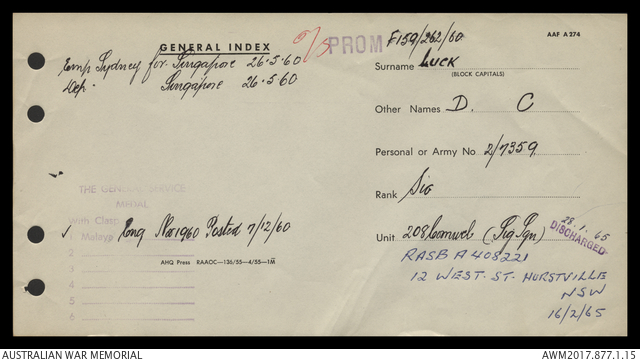 GENERAL INDEX
PROM
F159/262/60
AAF A274
Emp Sydney for Singapore 26.5.60
Dep. Singapore 26.5.60
Surname LUCK
(BLOCK CAPITALS)
Other Names D. C
Personal or Army No. 2/7359
Rank Sig
Unit 208 Comwel (Sig Sqn)
28.1.65
DISCHARGED
RASB A 408221
12 WEST. ST. HURSTVILLE
NSW
16/2/65
THE GENERAL SERVICE
MEDAL
With Clasp
1. Malaya
1. Eng Nov 1960 Posted 7/12/60
2
3
4
5
6
AHQ Press RAAOC—136/55—4/55—1M
AUSTRALIAN WAR MEMORIAL
AWM2017.877.1.15